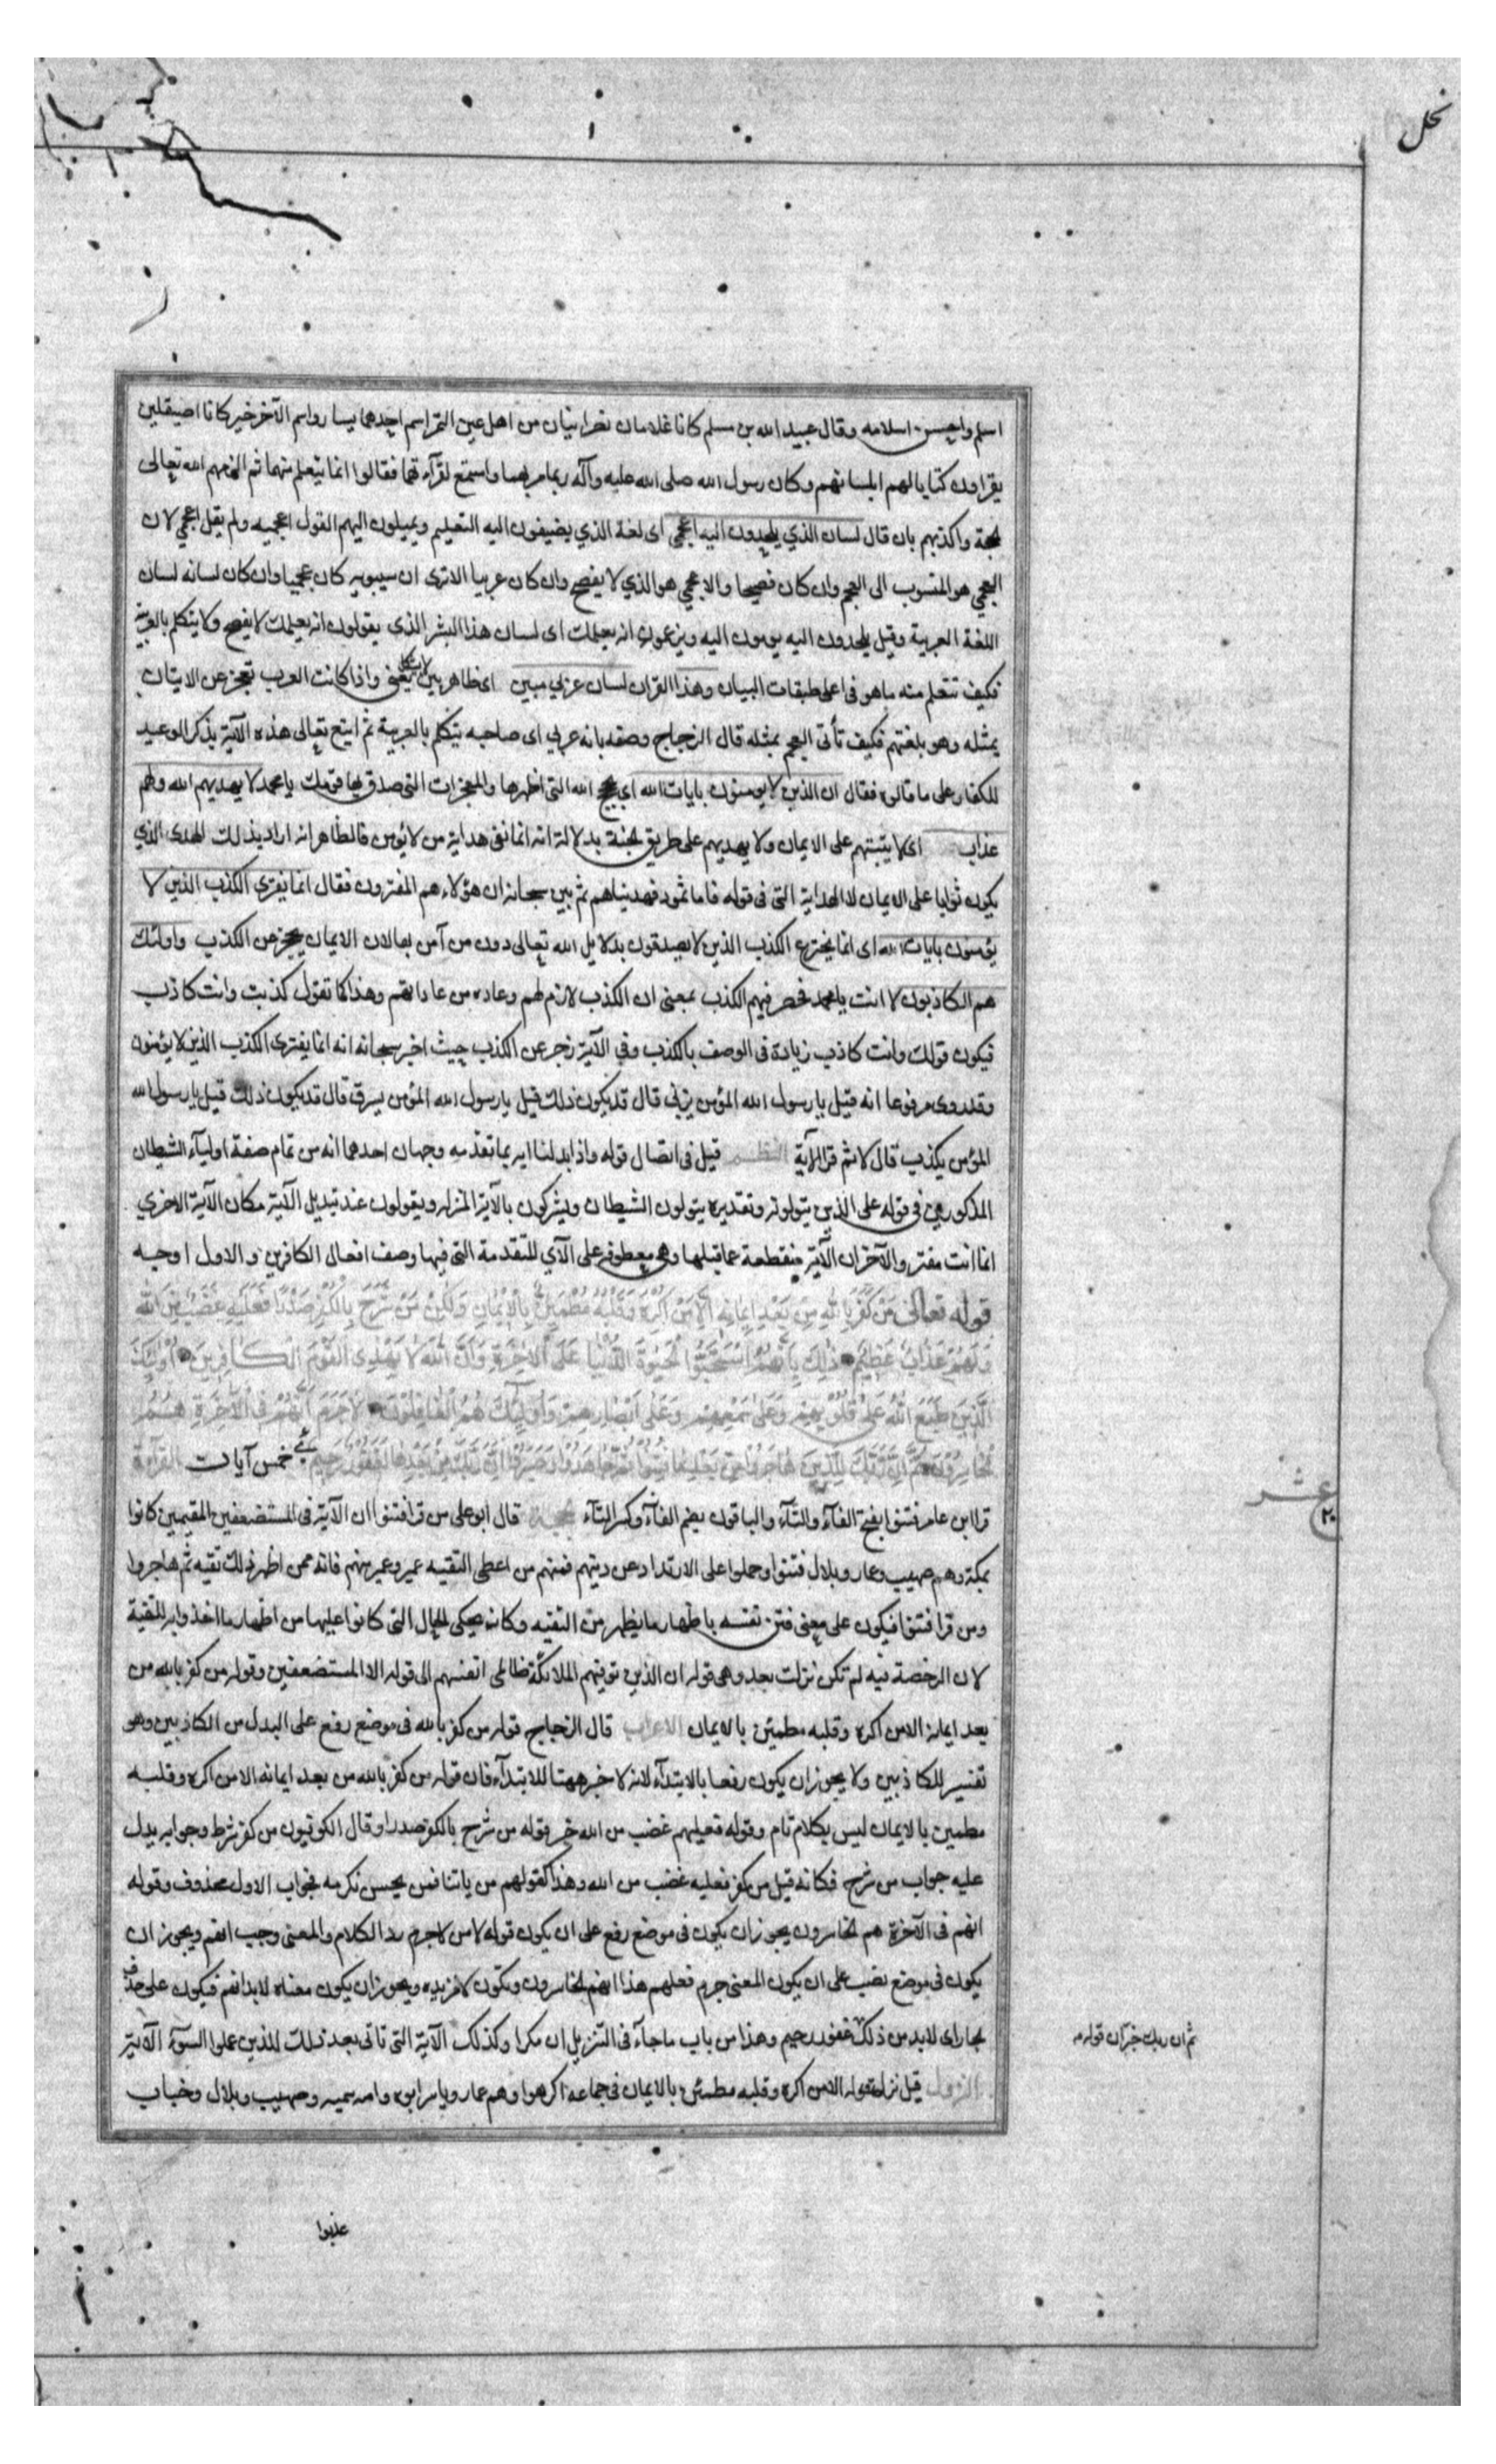 نحل
اسلم واحسن اسلامه وقال عبيد الله بن مسلم كانا غلامان نصرانيان من اهل عين التمر اسم احدهما يسار واسم الآخر خير كانا صيقلين
يقراون كتابا لهم بلسانهم وكان رسول الله صلى الله عليه وآله ربما مر بهما واستمع لقرآءتهما فقالوا انما يتعلم منهما ثم الزمهم الله تعالى
الحجة واكذبهم بان قال لسان الذي يلحدون اليه اعجمي اى لغة الذي يضيفون اليه التعليم ويميلون اليهم القول اعجميه ولم يقل عجمي لان
العجمي هو المنسوب الى العجم وان كان فصيحا والاعجمي هو الذي لا يفصح وان كان عربيا الا ترى ان سيبويه كان عجميا وان كان لسانه لسان
اللغة العربية وقيل يلحدون اليه يومون اليه ويزعمون انه يعلمك اى لسان هذا البشر الذى يقولون انه يعلمك لا يفصح ولا يتكلم بالعربية
فكيف تتعلم منه ما هو فى اعلى طبقات البيان وهذا القران لسان عربي مبين اى ظاهر بين لا يشكل يعنى واذا كانت العرب تعجز عن الاتيان
بمثله وهو بلغتهم فكيف تأتى العجم بمثله قال الزجاج وصفه بانه عربي اى صاحبه يتكلم بالعربية ثم اتبع تعالى هذه الآية بذكر الوعيد
للكفار على ما قالوه فقال ان الذين لا يومنون بايات الله اى بحجج الله التى اظهرها والمعجزات التى صدق بها قولك يا محمد لا يهديهم الله ولهم
عذاب اى لا يثبتهم على الايمان ولا يهديهم على طريق الجنة بدلالة انه انما نفى هداية من لا يؤمن فالظاهر انه اراد بذلك الهدى الذي
يكون ثوابا على الايمان لا الهداية التى فى قوله فاما ثمود فهديناهم ثم بين سبحانه ان هؤلاء هم المفترون فقال انما يفترى الكذب الذين لا
يؤمنون بايات الله اى انما يخترع الكذب الذين لا يصدقون بدلايل الله تعالى دون من آمن بها لان الايمان يحجز عن الكذب واولئك
هم الكاذبون لا انت يا محمد فحصر فيهم الكذب بمعنى ان الكذب لازم لهم وعاده من عاداتهم وهذا كما تقول كذبت وانت كاذب
فيكون قولك وانت كاذب زيادة فى الوصف بالكذب وفي الآية زجر عن الكذب حيث اخبر سبحانه انه انما يفترى الكذب الذين لا يؤمنون
وقد روى مرفوعا انه قيل يا رسول الله المؤمن يزني قال قد يكون ذلك قيل يا رسول الله المؤمن يسرق قال قد يكون ذلك قيل يا رسول الله
المؤمن يكذب قال لا ثم قرا الآية النظم قيل فى اتصال قوله واذا بدلنا اية بما تقدمه وجهان احدهما انه من تمام صفة اوليآء الشيطان
المذكورين فى قوله على الذين يتولونه وتقديره يتولون الشيطان ويشركون بالآية المنزله ويقولون عند تبديل الآية مكان الآية الاخري
انما انت مفتر والآخر ان الآية منقطعة عما قبلها وهى معطوفه على الآي المتقدمة التى فيها وصف افعال الكافرين والاول اوجه
قوله تعالى مَنْ كَفَرَ بِاللهِ مِنْ بَعْدِ اِيمَانِهِ اِلَّا مَنْ اُكْرِهَ وَقَلْبُهُ مُطْمَئِنٌّ بِالْاِيْمَانِ وَلَكِنْ مَنْ شَرَحَ بِالْكُفْرِ صَدْرًا فَعَلَيْهِمْ غَضَبٌ مِنَ اللهِ
وَلَهُمْ عَذَابٌ عَظِيمٌ ذٰلِكَ بِاَنَّهُمُ اسْتَحَبُّوا الْحَيٰوةَ الدُّنْيَا عَلَى الْاٰخِرَةِ وَاَنَّ اللهَ لَا يَهْدِى الْقَوْمَ الْكَافِرِينَ اُولٰئِكَ
الَّذِينَ طَبَعَ اللهُ عَلٰى قُلُوبِهِمْ وَعَلٰى سَمْعِهِمْ وَعَلٰى اَبْصَارِهِمْ وَاُولٰئِكَ هُمُ الْغَافِلُونَ لَا جَرَمَ اَنَّهُمْ فِى الْاٰخِرَةِ هُمُ
الْخَاسِرُونَ ثُمَّ اِنَّ رَبَّكَ لِلَّذِينَ هَاجَرُوا مِنْ بَعْدِ مَا فُتِنُوا ثُمَّ جَاهَدُوا وَصَبَرُوا اِنَّ رَبَّكَ مِنْ بَعْدِهَا لَغَفُورٌ رَحِيمٌ خمس آيات القرآءة
عشر
٢٠
قرا ابن عامر فتنوا بفتح الفآء والتآء والباقون بضم الفآء وكسر التآء الحجة قال ابو على من قرا فتنوا ان الآية فى المستضعفين المقيمين كانوا
بمكة وهم صهيب وعمار وبلال فتنوا وحملوا على الارتداد عن دينهم فمنهم من اعطى التقيه عمير وغير منهم فانه ممن اظهر ذلك تقيه ثم هاجروا
ومن قرا فتنوا فيكون على معنى فتن نفسه باظهار ما يظهر من التقيه وكانه يحكى الحال التى كانوا عليها من اظهار ما اخذوا به للتقية
لان الرخصة فيه لم تكن نزلت بعد وهى قوله ان الذين توفيهم الملائكة ظالمى انفسهم الى قوله الا المستضعفين وقوله من كفر بالله من
بعد ايمانه الا من اكره وقلبه مطمئن بالايمان الاعراب قال الزجاج قوله من كفر بالله فى موضع رفع على البدل من الكاذبين وهو
تفسير للكاذبين ولا يجوز ان يكون رفعا بالابتدآء لانه لا خبر ههنا للابتدآء فان قوله من كفر بالله من بعد ايمانه الا من اكره وقلبه
مطمين بالايمان ليس بكلام تام وقوله فعليهم غضب من الله خبر قوله من شرح بالكفر صدرا وقال الكوفيون من كفر شرط وجوابه يدل
عليه جواب من شرح فكانه قيل من كفر فعليه غضب من الله وهذا كقولهم من ياتنا فمن يحسن نكرمه فجواب الاول محذوف وقوله
انهم فى الآخرة هم الخاسرون يجوز ان يكون فى موضع رفع على ان يكون قوله لا من لا جرم رد الكلام والمعنى وجب انهم ويجوز ان
يكون فى موضع نصب على ان يكون المعنى جرم فعلهم هذا انهم الخاسرون ويكون لا مزيده ويجوز ان يكون معناه لابد انهم فيكون على حذف
الجار اى لابد من ذلك غفور رحيم وهذا من باب ما جآء فى التنزيل ان مكررا وكذلك الآية التى تاتى بعد تلك للذين عملوا السوء الآية
ثم ان ربك خبر ان قوله
النزول قيل نزل قوله الا من اكره وقلبه مطمئن بالايمان فى جماعة اكرهوا وهم عمار وياسر ابوه وامه سميه وصهيب وبلال وخباب
عذبوا